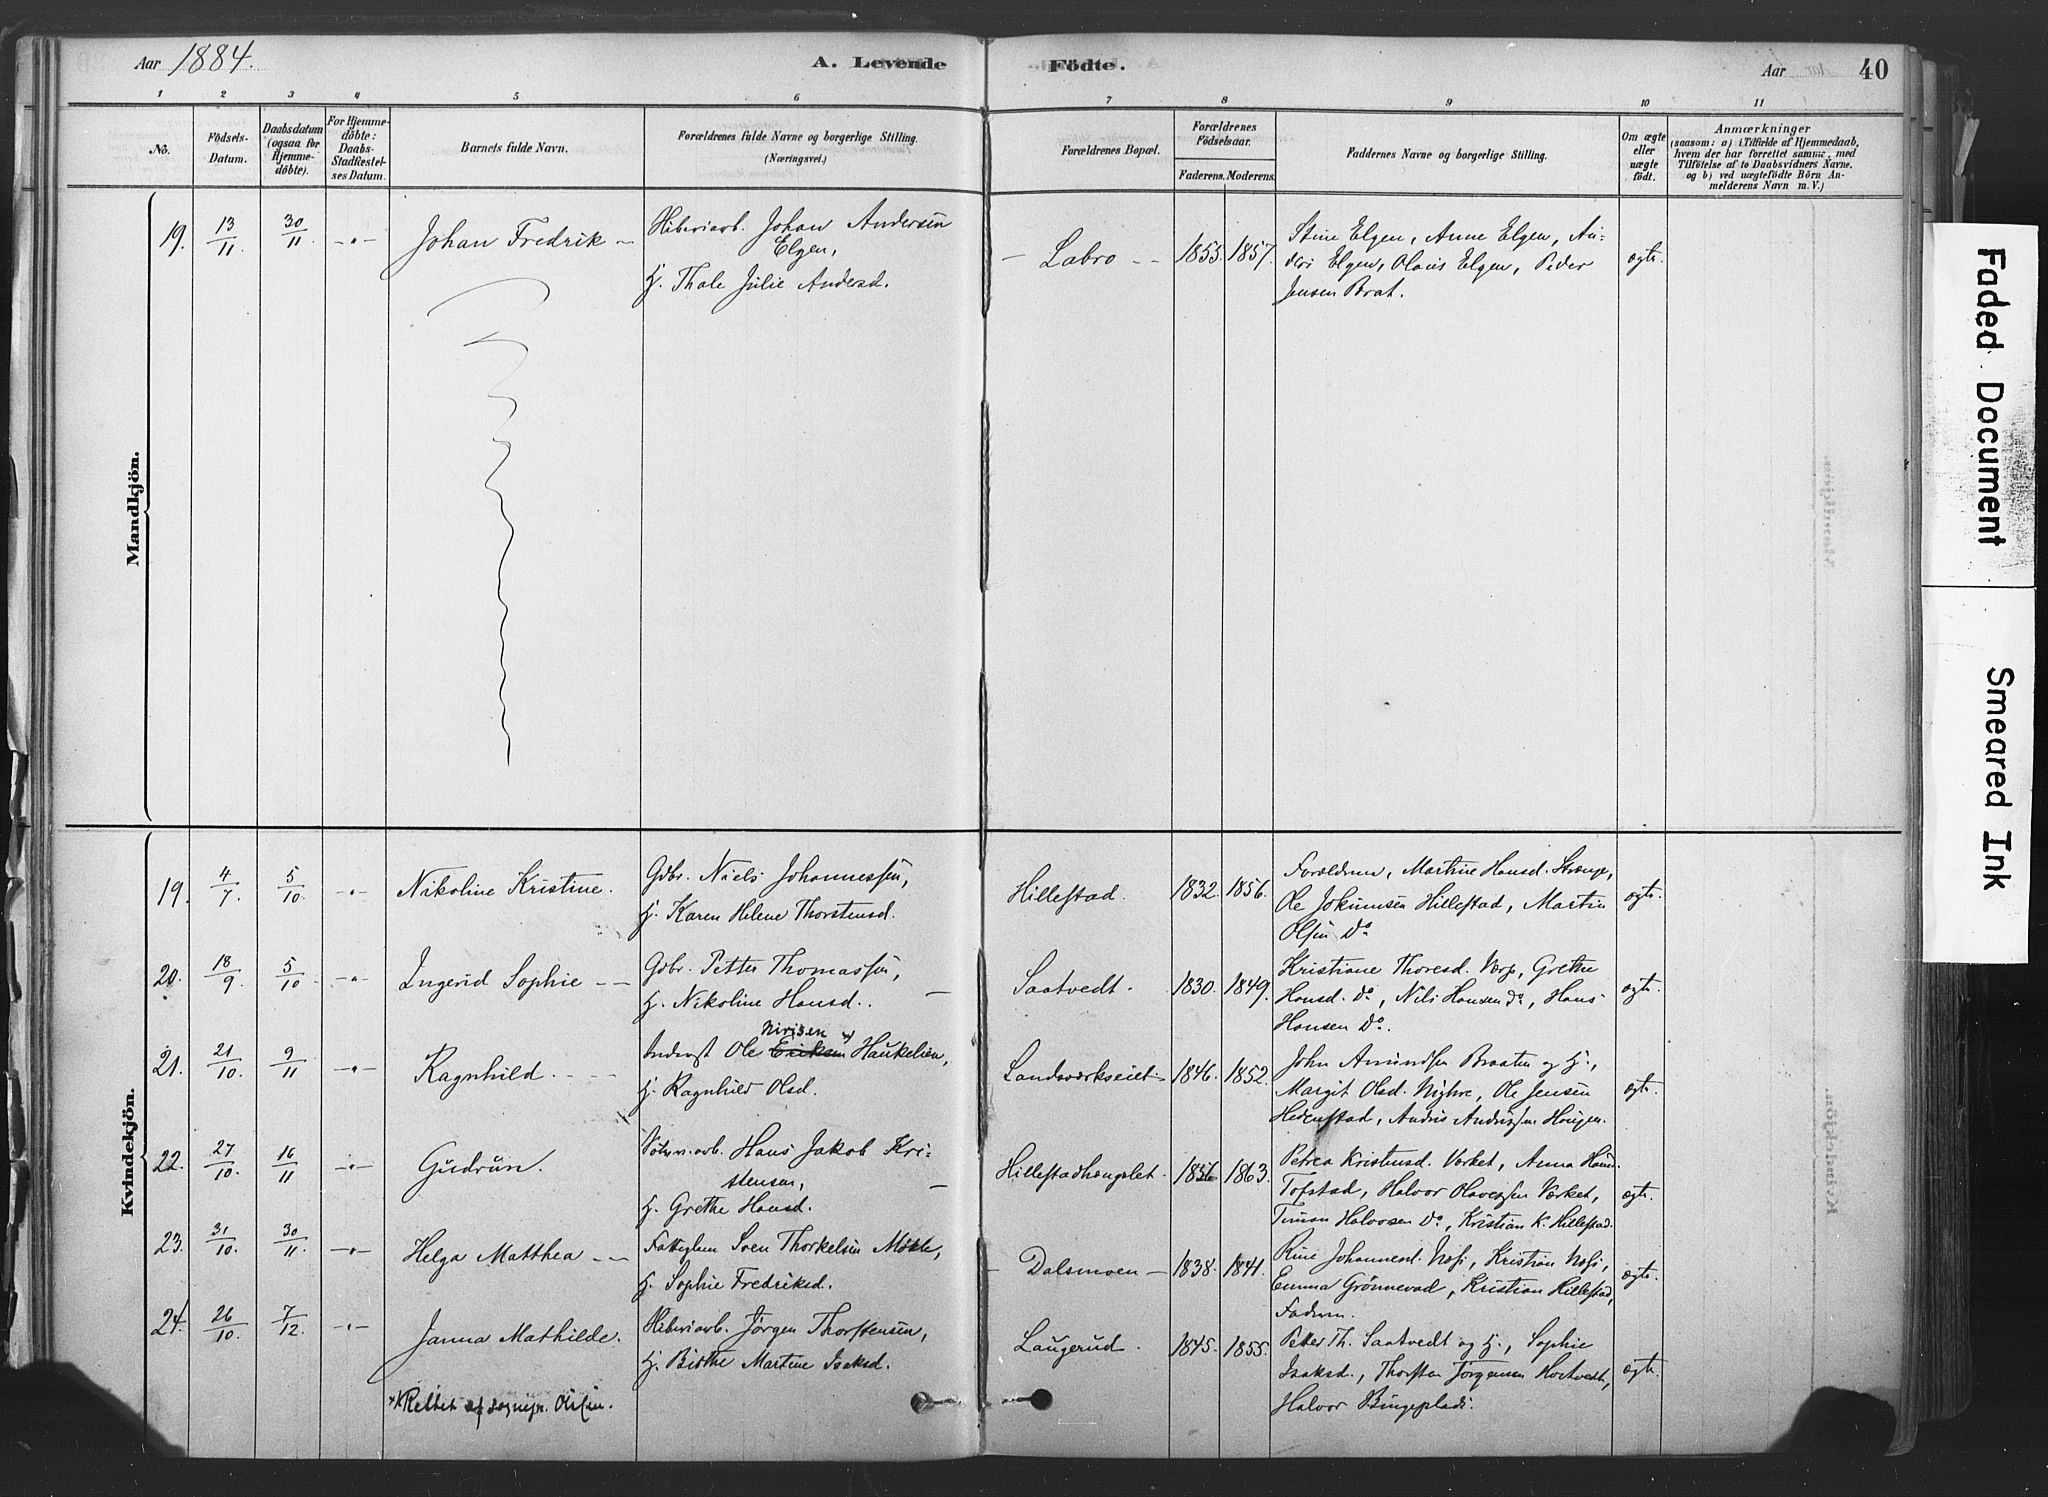 Aar 1884.
A. Levende Födte.
Aar
40
1 2 3 4 5 6 7 8 9 10 11
No.
Födsels-
Datum.
Daabsdatum
(ogsaa for
Hjemme-
døbte).
For Hjemme-
døbte:
Daabs-
Stadfæstel-
ses Datum.
Barnets fulde Navn.
Forældrenes fulde Navne og borgerlige Stilling.
(Næringsvei.)
Forældrenes Bopæl.
Forældrenes
Födselsaar.
Faderens. Moderens.
Faddernes Navne og borgerlige Stilling.
Om ægte
eller
uægte
födt.
Anmærkninger
(saasom: a) i Tilfælde af Hjemmedaab,
hvem der har forrettet samme, med
Tilföielse af to Daabsvidners Navne,
og b) ved uægtefödte Börn An-
melderens Navn m. V.)
Mandkjön.
19. 13/11 30/11 -"- Johan Fredrik –
Johan Andersen
Elgen,
H. Thale Julie Andersd.
– Labro – 1855. 1857.
Stine Elgen, Anne Elgen, An-
ders Elgen, Olaus Elgen, Peder
Jensen Brat.
ægte.
Kvindekjön.
19. 4/7 5/10 -"- Nikoline Kristine.
Gdbr. Niels Johannessen,
H. Karen Helene Thorstensd.
Hillestad. 1832. 1856.
Forældrene, Martine Hansd. Strange,
Ole Jokumsen Hillestad, Martin
Olsen Do
ægte.
20. 18/9 5/10 -"- Ingerid Sophie –
Gdbr. Petter Thomassen,
H. Nikoline Hansd. –
Saatvedt. 1830. 1849.
Kristiane Thoresd. Værp, Grethe
Hansd. Do, Nils Hansen Do, Hans
Hansen Do.
ægte.
21. 21/10 9/11 -"- Ragnhild. –
Inderst Ole Eriksen Nirisen x) Haukelien,
H. Ragnhild Olsd.
Landsværkseiet – 1846. 1852.
John Amundsen Braaten og H.,
Margit Olsd. Nyhve, Ole Jensen
Hedenstad, Anders Andersen Haugen.
ægte.
22. 27/10 16/11 -"- Gudrun.
Hans Jakob Kri-
stensen,
H. Grethe Hansd. –
Hillestadhengslet. 1856 1863.
Petrea Kristensd. Værket, Anna Hansd.
Tofstad, Halvor Olavessen Værket,
Timan Halvorsen Do, Kristian K. Hillestad.
ægte.
23. 31/10 30/11 -"- Helga Matthea –
Sven Thorkelsen Moble,
H. Sophie Fredriksd.
– Dalsmoen – 1838. 1841.
Rine Johannesd. Næsi, Kristian Næsi,
Emma Grönnevad, Kristian Hillestad,
Faderen.
ægte.
24. 26/10 7/12 -"- Janna Mathilde.
Jørgen Thorstensen,
H. Birthe Martine Isaksd.
Laugerud. 1845. 1855.
Petter Th. Saatvedt og H., Sophie
Isaksd., Thorsten Jørgensen Hostvedt,
Halvor Bingeplads.
ægte.
x) Rettet af sognepr. Olsen.
Faded Document
Smeared Ink